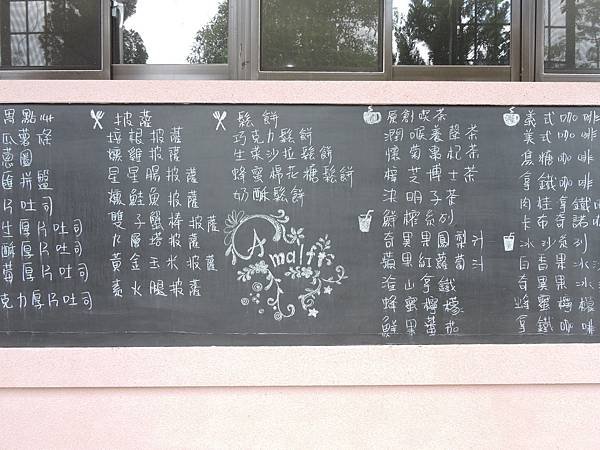 點心
瓜薯條
蔥圈
拼盤
片吐司
生厚片吐司
酥厚片吐司
莓厚片吐司
克力厚片吐司
披薩
培根披薩
燻雞披薩
星星腸披薩
燻鮭魚披薩
雙子蟹棒披薩
層塔披薩
黃金玉米披薩
素火腿披薩
鬆餅
巧克力鬆餅
生菜沙拉鬆餅
蜂蜜棉花糖鬆餅
奶酥鬆餅
Amalfi
原創悅茶
潤喉養聲茶
懷菊果杞茶
檸芝博士茶
決明子茶
鮮榨系列
奇異果鳳梨汁
蘋果紅蘿蔔汁
冶山拿鐵
蜂蜜檸檬
鮮果蕃茄
義式咖啡
美式咖啡
焦糖咖啡
拿鐵咖啡
肉桂拿鐵咖
卡布奇諾咖
冰沙系列
百香果冰
奇異果冰
蜂蜜檸檬
拿鐵咖啡